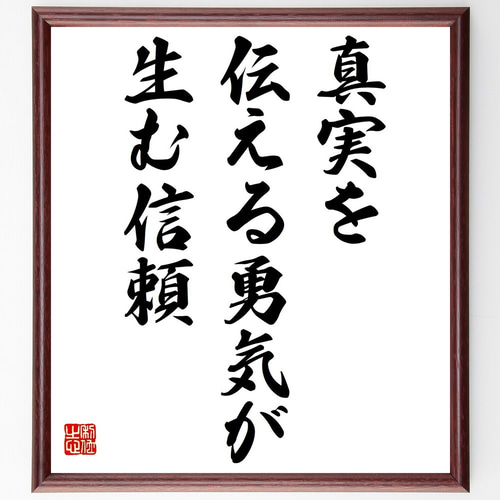 真実を
伝える勇気が
生む信頼